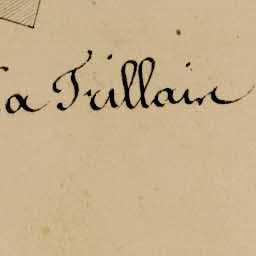 la Trillain